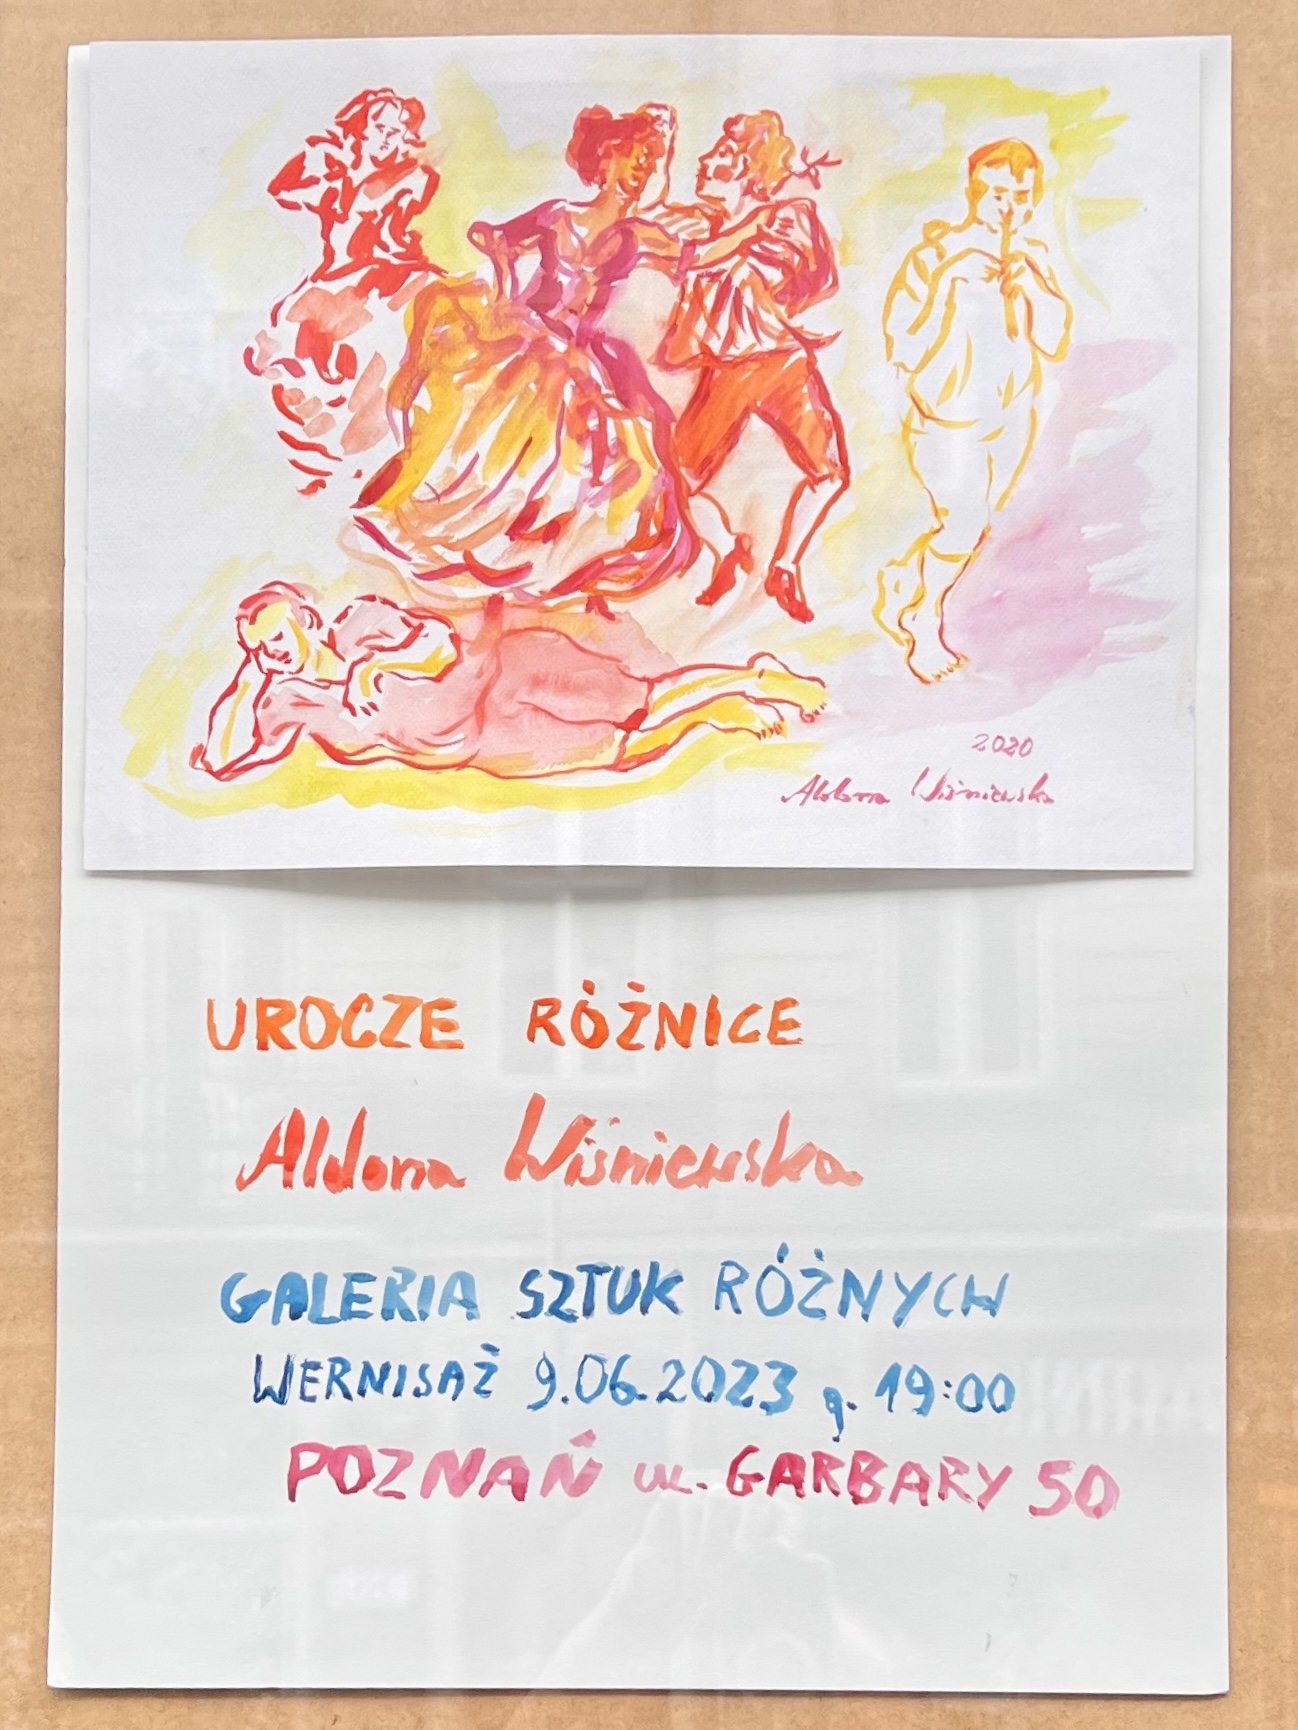 2020
Aldona Wiśniewska
UROCZE RÓŻNICE
Aldona Wiśniewska
GALERIA SZTUK RÓŻNYCH
WERNISAŻ 9.06.2023 g. 19:00
POZNAŃ ul. GARBARY 50